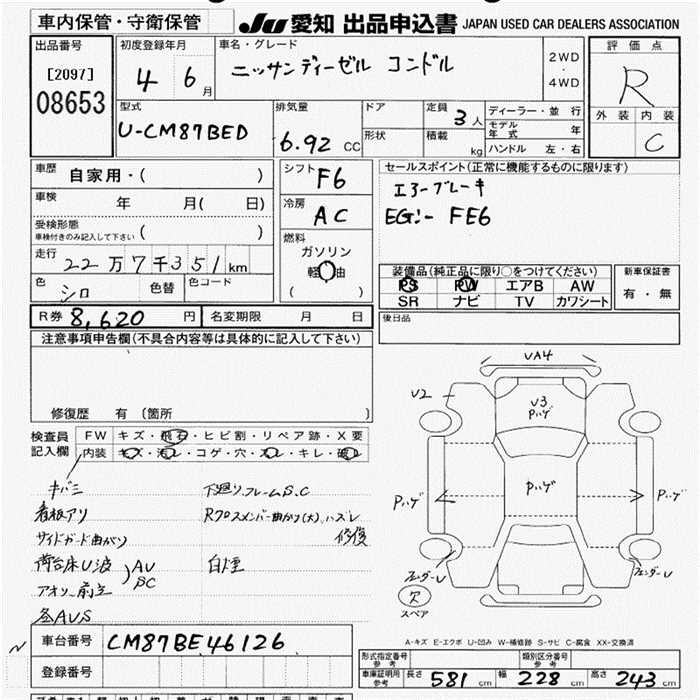 車内保管・守衛保管 JU 愛知 出品申込書 JAPAN USED CAR DEALERS ASSOCIATION
出品番号 初度登録年月 車名・グレード 評価点
[2097] 4 6月 ニッサンディーゼル コンドル 2WD・4WD R
08653 型式 排気量 ドア 定員 3人 ディーラー・並行 外装 内装
U-CM87BED 6.92 CC 形状 積載 kg モデル年式 年 C
ハンドル 左・右
車歴 自家用・( ) シフト F6 セールスポイント(正常に機能するものに限ります)
車検 年 月( 日) 冷房 AC エヨーブレーキ
受検形態 車検付きのみ記入して下さい ( ) EG!- FE6
走行 22万7千351km 燃料 ガソリン 軽油 ( )
色 シロ 色替 色コード
装備品(純正品に限り〇をつけてください) 新車保証書
PS PW エアB AW 有・無
SR ナビ TV カワシート
R券 8,620 円 名変期限 月 日 後日品
注意事項申告欄(不具合内容等は具体的に記入して下さい)
修復歴 有 (箇所 )
検査員記入欄 FW キズ・飛石・ヒビ割・リペア跡・X要
内装 キズ・汚レ・コゲ・穴・スレ・キレ・破レ
キバミ 下廻りフレームS.C
看板アリ Rクロスメンバー曲がり(大)、ハズレ
サイドガード曲がり 修復
荷台床U波 AU 白煙
アオリ、前立 SC
各AUS
UA4
U2 U3 Pハゲ
Pハゲ Pハゲ Pハゲ
フェンダーU フェンダーU
欠
スペア
A-キズ E-エクボ U-凹み W-補修跡 S-サビ C-腐食 XX-交換済
車台番号 CM87BE46126
登録番号
形式指定番号 参考 類別区分番号 参考
車庫証明用 参考 長さ 581 cm 幅 228 cm 高さ 243 cm